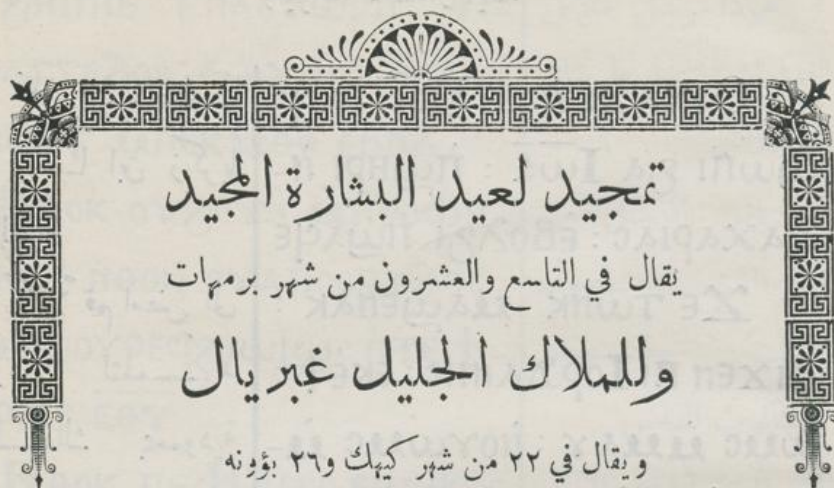 تمجيد لعيد البشارة المجيد
يقال في التاسع والعشرون من شهر برمهات
وللملاك الجليل غبريال
ويقال في ٢٢ من شهر كيهك و٢٦ بؤونه